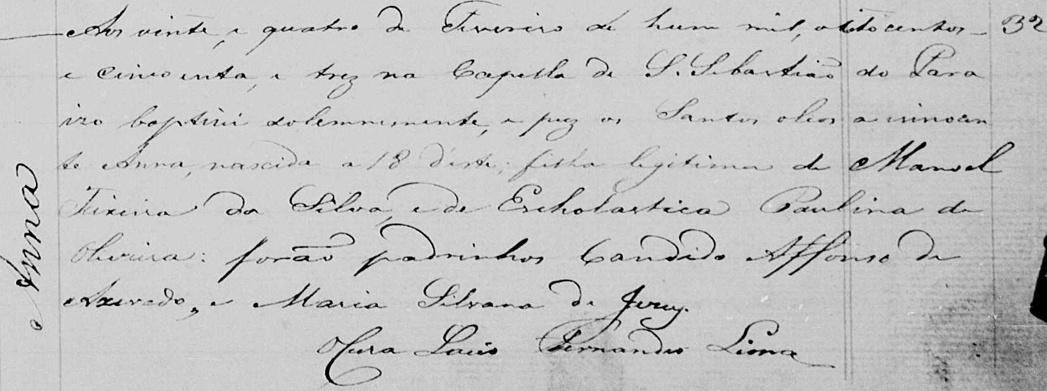 Aos vinte, e quatro de Fevereiro de hum mil, oitocentos 32
e cincoenta, e trez na Capella de S. Sebastião do Parai
izo baptizei solemnemente, e puz os Santos oleos a innocen
te Anna, nascida a 18 d'este; filha legitima de Manoel
Teixeira da Silva, e de Escholastica Paulina de
Oliveira: forão padrinhos Candido Affonso de
Azevedo, e Maria Silvana de Jesus.
O Cura Fernandes Lima
Anna